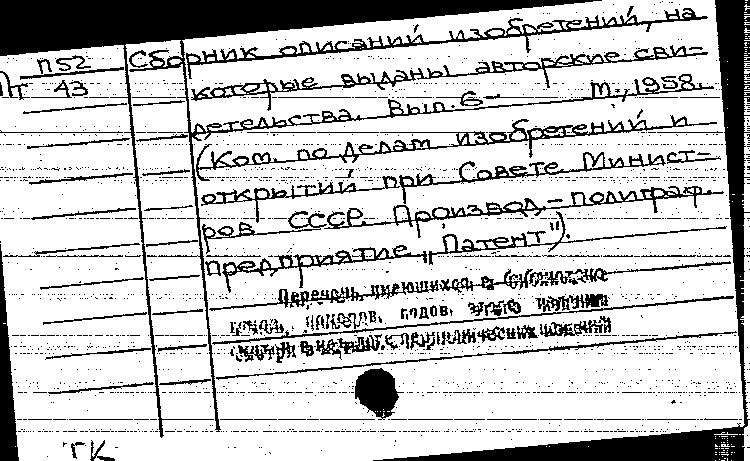 П52 Сборник описаний изобретений, на
Пт 43 которые выданы авторские сви-
детельства. Вып. 6- М., 1958.
(Ком. по делам изобретений и
открытий при Совете Минист-
ров СССР. Производ.-полиграф.
предприятие „Патент").
Перечень имеющихся в библиотеке
томов, номеров, годов этого издания
смотри в каталоге периодических изданий
ТК